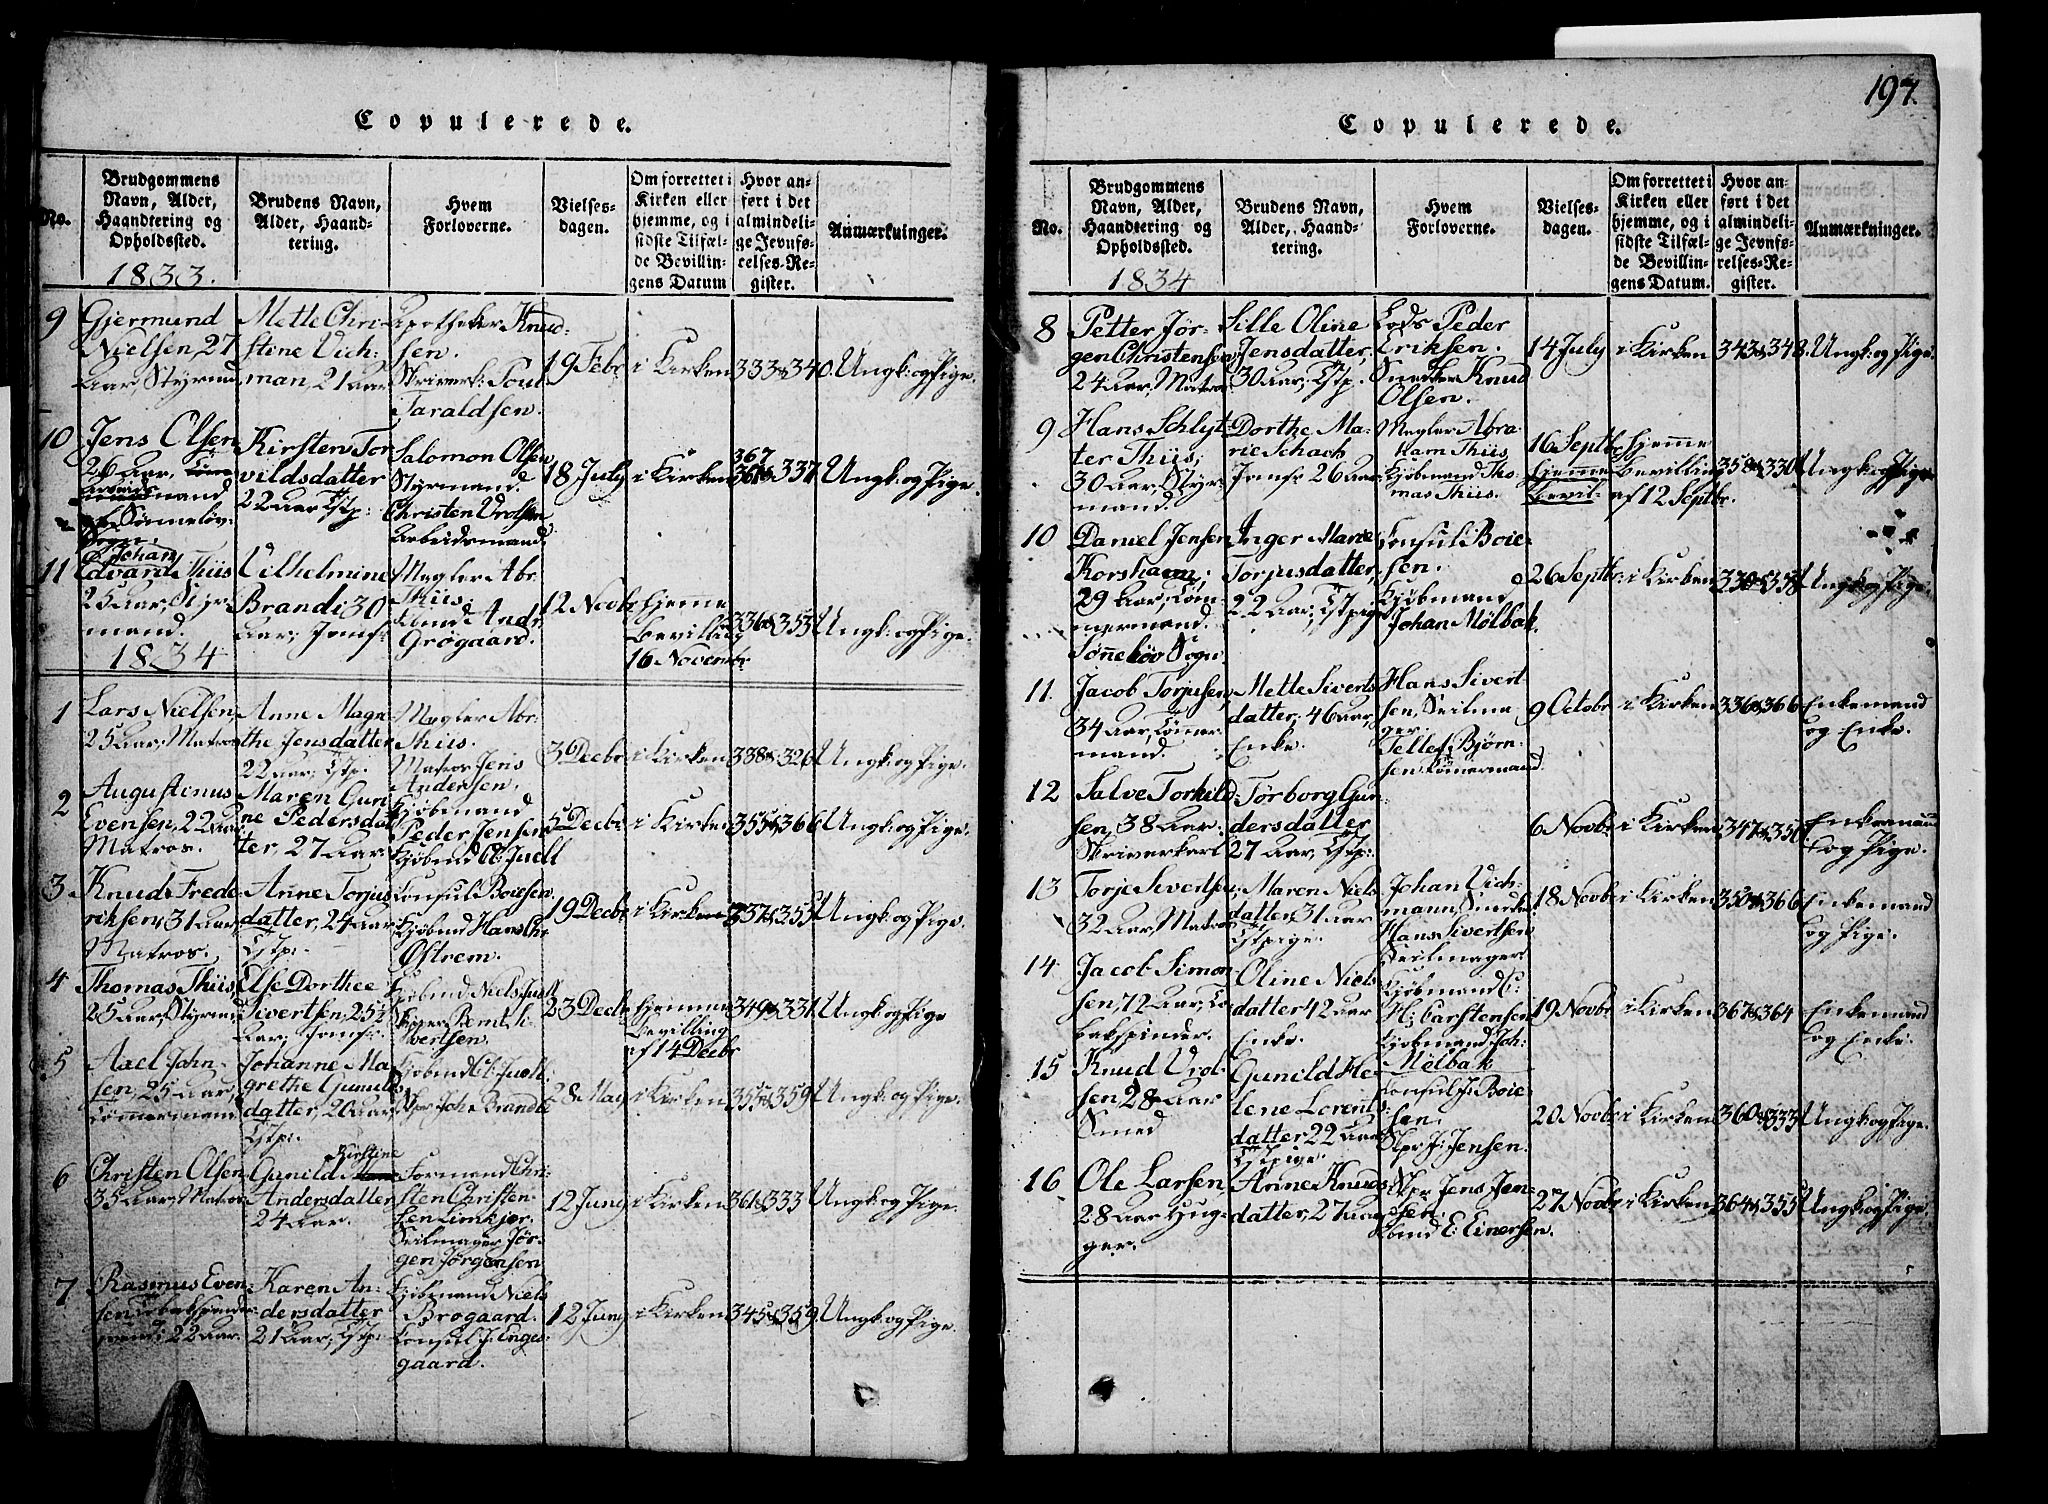 197.
Copulerede.
No.
Brudgommens
Navn, Alder,
Haandtering og
Opholdssted.
1833.
Brudens Navn,
Alder, Haand-
tering.
Hvem
Forloverne.
Vielses-
dagen.
Om forrettet i
Kirken eller
hjemme, og i
sidste Tilfæl-
de Bevillin-
gens Datum
Hvor an-
ført i det
almindeli-
ge Jevnfø-
relses-Re-
gister.
Anmærkninger.
9
Gjermund
Nielsen, 27
Aar, Styrmd
Mette Chri-
stine Vich-
man, 21 Aar
Apotheker Knud-
sen.
Skriverk: Poul
Taraldsen.
19 Febr
i Kirken
333 & 340.
Ungk: og Pige.
10
Jens Olsen
26 Aar,
Arbeids
mand
af Sønneløv
Sogn.
Kirsten Tor
vildsdatter
22 Aar Tstp:
Salomon Olsen
Styrmand.
Christen Vrolsen
Arbeidsmand.
18 July
i Kirken
367
& 337
Ungk: og Pige.
11
Johan
Edvard Thiis
25 Aar, Styr-
mand.
Vilhelmine
Brandi 30
Aar, Jomf:
Megler Abr.
Thiis.
Kbmd Andr.
Grøgaard.
12 Novbr
hjemme
Bevilling
16 Novembr
336 & 353
Ungk: og Pige.
1834
1
Lars Nielsen,
25 Aar, Matros
Anne Magre
the Jensdatter
22 Aar, Tstp.
Megler Abr.
Thiis.
Matros Jens
Andersen.
3 Decbr
i Kirken
338 & 326
Ungk: og Pige.
2
Augustinus
Evensen, 22 Aar
Matros.
Maren Gun
ne Pedersdat
ter, 27 Aar.
Kjöbmand
Peder Jensen
Kjøbmd Cl: Juell
5 Decbr
i Kirken
355 & 366
Ungk: og Pige.
3
Knud Frede
riksen, 31 Aar
Matros.
Anne Torjus
datter, 24 Aar
Tstp:
Consul Boiesen
Kjøbmd Hans Chr
Østrem.
19 Decbr
i Kirken
337 & 355
Ungk: og Pige.
4
Thomas Thiis,
25 Aar, Styrmd
Else Dorthee
Sivertsen, 25½
Aar, Jomf:
Kjøbmd Niels Juell
Skiper Bernt
Sivertsen.
23 Decbr
hjemme
Bevilling
af 14 Decbr
349 & 331.
Ungk: og Pige
5
Axel John-
sen, 25 Aar,
Tømmermand
Johanne Ma
grethe Gunulds
datter, 20 Aar,
Tstp:
Kjøbmd Cl: Juell.
Skpr Joh: Brandt
28 May
i Kirken
355 & 359
Ungk: og Pige.
6
Christen Olsen
35 Aar, Matros
Kirstine
Gunild
Andersdatter
24 Aar.
Formand Chri-
sten Christen-
sen Limkjær.
Seilmager Jør-
gen Jørgensen
12 Juny
i Kirken
361 & 333
Ungk: og Pige.
7
Rasmus Even-
sen Tobakspinder
svend, 22 Aar.
Karen An-
dersdatter
21 Aar, Tstp:
Kjöbmand Niels
Brogaard.
Consul J: Enges-
gaard.
12 Juny
i Kirken
345 & 359.
Ungk: og Pige.
Copulerede.
No.
Brudgommens
Navn, Alder,
Haandtering og
Opholdssted.
1834
Brudens Navn,
Alder, Haand-
tering.
Hvem
Forloverne.
Vielses-
dagen.
Om forrettet i
Kirken eller
hjemme, og i
sidste Tilfæl-
de Bevillin-
gens Datum.
Hvor an-
ført i det
almindeli-
ge Jevnfø-
relses-Re-
gister.
Anmærkninger.
8
Petter Jør-
gen Christensen
24 Aar, Matros
Sille Oline
Jensdatter,
30 Aar, Tstp.
Lods Peder
Eriksen.
Snedker Knud
Olsen.
14 July
i Kirken
343 & 348.
Ungk: og Pige.
9
Hans Schlyt-
ter Thiis;
30 Aar, Styr-
mand.
Dorthe Ma-
rie Schach
Jomfr: 26 Aar
Megler Abra
ham Thiis
Kjöbmand Tho-
mas Thiis.
16 Septbr
hjemme
Bevil-
hjemme
Bevilling
af 12 Septbr.
358 & 330
Ungk: og Pige
10
Daniel Jensen
Korshavn;
29 Aar, Tøm-
mermand.
Sønneløv Sogn
Inger Marie
Torjusdatter,
22 Aar, Tstpige
Consul Boie-
sen.
Kjöbmand
Johan Mølbak.
26 Septbr
i Kirken
330 & 358
Ungk: og Pige.
11.
Jacob Torjusen,
34 Aar, Tømer
mand.
Mette Siverts
datter, 46 Aar,
Enke.
Hans Sivert
sen, Seilma
ger.
Tellef Bjørn-
sen Tømermand
9 Octobr
i Kirken
336 & 366
Enkemand
og Enke.
12
Salve Torkild-
sen, 38 Aar
Skriverkarl
Tørborg Gun-
dersdatter
27 Aar, Tstp:
6 Novbr
i Kirken
347 & 350
Enkemand
og Pige.
13
Torje Sivertsen
32 Aar, Matros
Maren Niels
datter, 31 Aar
Tstpige.
Johan Vich-
mann, Snedker
Hans Sivertsen
Seilmager
18 Novbr
i Kirken
350 & 366
Enkemand
og Pige.
14
Jacob Simon
sen, 72 Aar, To
bakspinder.
Oline Niels
datter 42 Aar
Enke.
Kjöbmand C:
H: Carstensen
Kjöbmand Joh:
Mølbak
19 Novbr
i Kirken
367 & 364
Enkemand
og Enke.
15
Knud Vrol-
sen 28 Aar
Smed
Gunild He-
lene Lorents-
datter, 22 Aar
Tstpige.
Consul J: Boie-
sen.
Skpr J: Jensen.
20 Novbr
i Kirken
360 & 333
Ungk: og Pige.
16
Ole Larsen,
28 Aar Hug-
ger.
Anne Knuds
datter, 27 Aar
Skpr Jens Jen-
sen.
Kbmd E: Einersen.
27 Novbr
i Kirken
364 & 355
Ungk: og Pige.